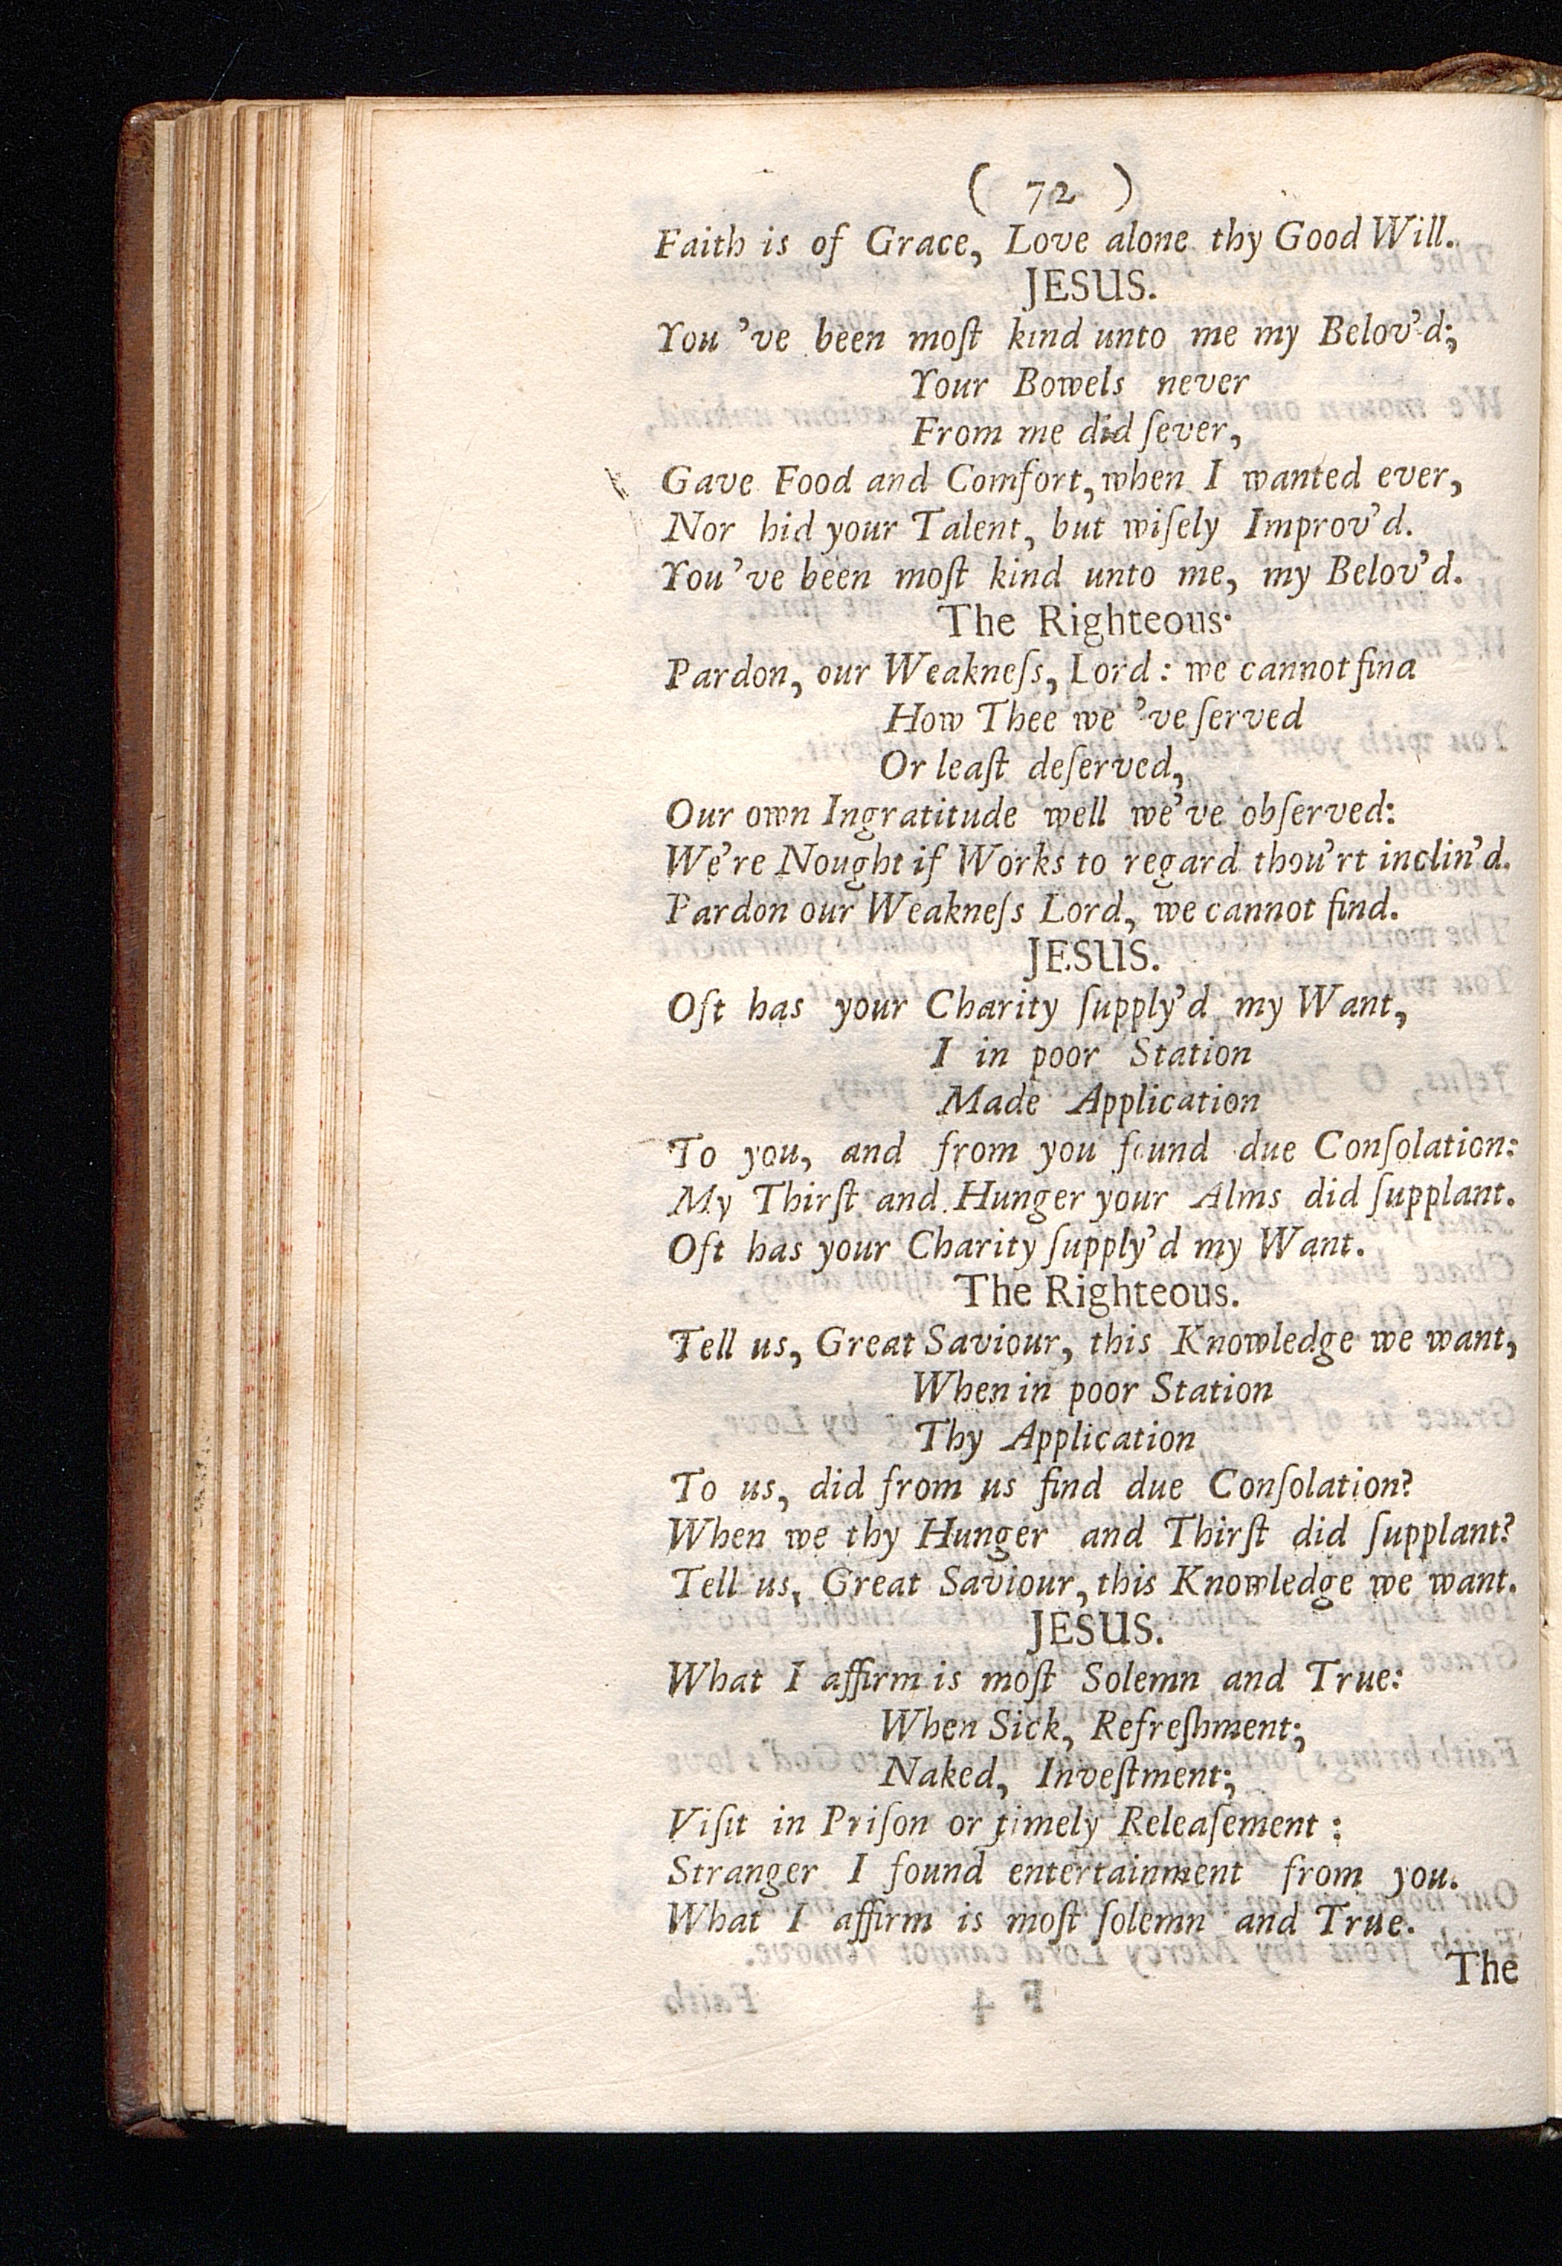 ( 72 )
Faith is of Grace, Love alone thy Good Will.
JESUS.
You 've been moſt kind unto me my Belov'd;
Your Bowels never
From me did ſever,
Gave Food and Comfort, when I wanted ever,
Nor hid your Talent, but wiſely Improv'd.
You 've been moſt kind unto me, my Belov'd.
The Righteous.
Pardon, our Weakneſs, Lord: we cannot find
How Thee we 've ſerved
Or leaſt deſerved,
Our own Ingratitude well we've obſerved:
We're Nought if Works to regard thou'rt inclin'd.
Pardon our Weakneſs Lord, we cannot find.
JESUS.
Oft has your Charity ſupply'd my Want,
I in poor Station
Made Application
To you, and from you found due Conſolation:
My Thirſt and Hunger your Alms did ſupplant.
Oft has your Charity ſupply'd my Want.
The Righteous.
Tell us, Great Saviour, this Knowledge we want,
When in poor Station
Thy Application
To us, did from us find due Conſolation?
When we thy Hunger and Thirſt did ſupplant?
Tell us, Great Saviour, this Knowledge we want.
JESUS.
What I affirm is moſt Solemn and True:
When Sick, Refreſhment;
Naked, Inveſtment;
Viſit in Priſon or timely Releaſement :
Stranger I found entertainment from you.
What I affirm is moſt ſolemn and True.
The